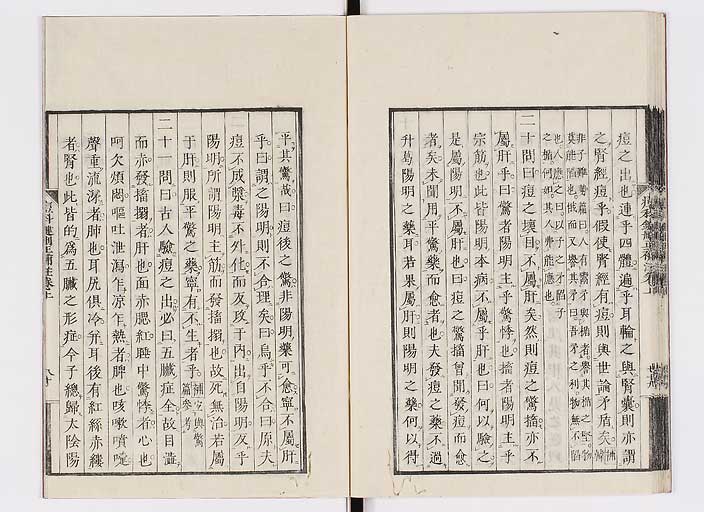 痘之出也連乎四體遍乎耳輪之與腎囊則亦謂
之腎經痘乎假使腎經有痘則與世論矛盾矣
非子難勢篇曰人有鬻矛與楯者譽其楯之堅物
莫能陷也俄而又譽其矛曰吾矛之利物無不陷
也人應之曰以子之矛陷子
之楯何如其人弗能應也
二十問曰痘之壞目不屬肝矣然則痘之驚搐亦不
屬肝乎曰驚者陽明主乎驚悸也搐者陽明主乎
宗筋也此皆陽明本病不屬乎肝也曰何以驗之
是屬陽明不屬肝也曰痘之驚搐曾聞發痘而愈
者矣未聞用平驚藥而愈者也夫發痘之藥不過
升葛陽明之藥耳若果屬肝則陽明之藥何以得
平其驚哉曰痘後之驚非陽明藥可愈寧不屬肝
乎曰謂之陽明則不合理矣曰烏乎不合曰原夫
痘不成漿毒不外化而反攻于内出自陽明反乎
陽明所謂陽明主筋而發搐搦也故死無治若屬
于肝則服平驚之藥寧有不生者乎
二十一問曰古人驗痘之出必曰五臟症全故目澁
而赤發搐搦者肝也面赤腮紅睡中驚悸者心也
呵欠煩悶嘔吐泄瀉乍涼乍熱者脾也咳嗽噴嚏
聲重流涕者肺也耳尻俱冷并耳後有紅絲赤縷
者腎也此皆的為五臟之形症今子總歸太陰陽